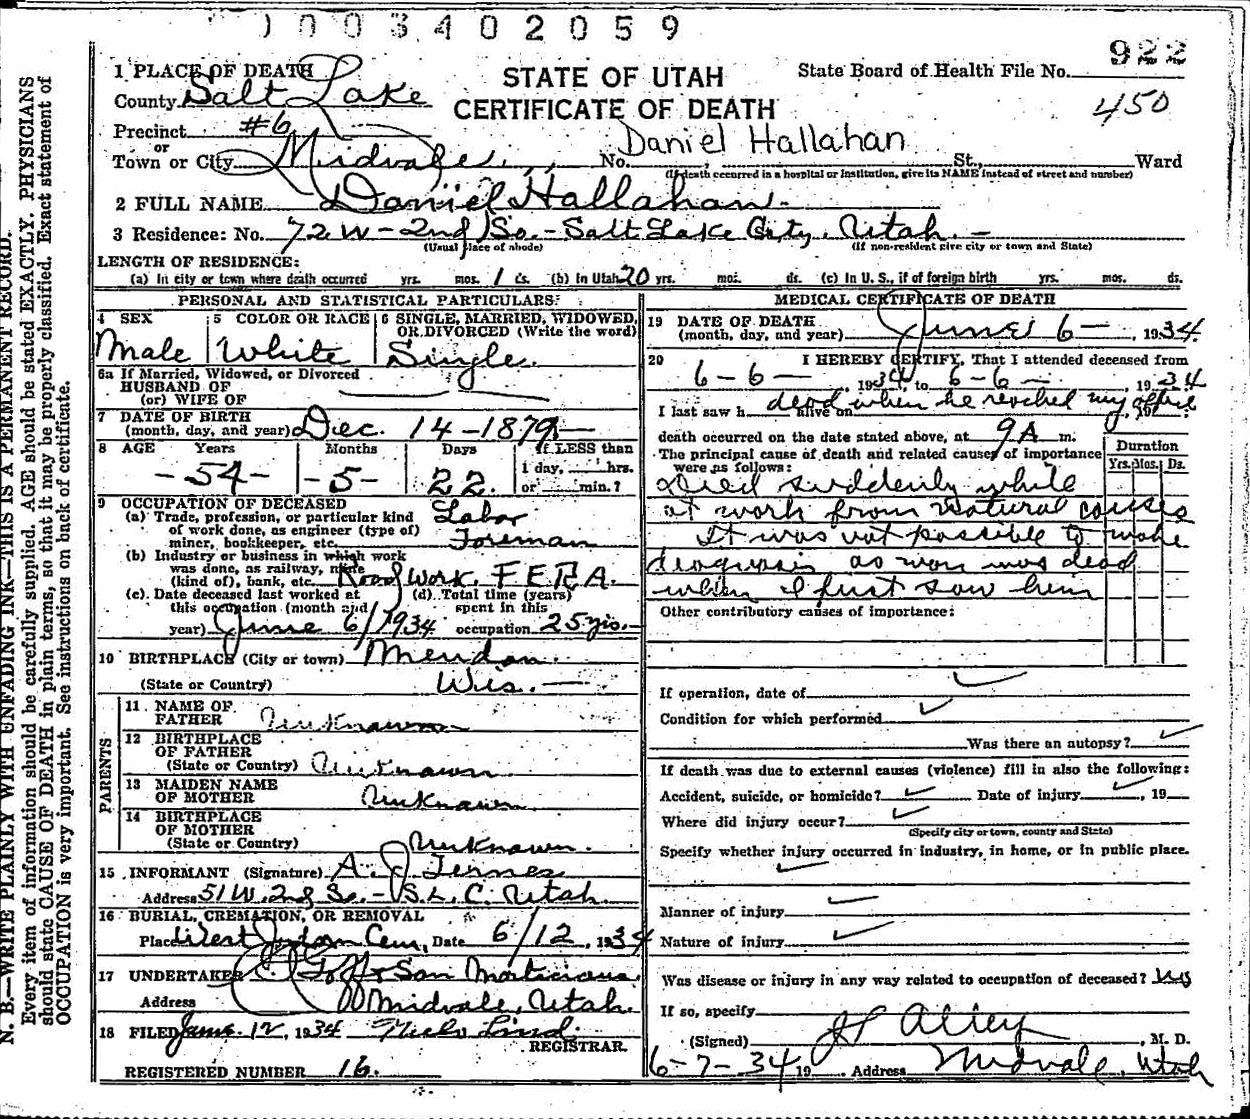 0003402059
922
STATE OF UTAH
CERTIFICATE OF DEATH
State Board of Health File No.
450
1 PLACE OF DEATH
County Salt Lake
Precinct #6
or
Town or City Midvale, No. Daniel Hallahan St., Ward
(If death occurred in a hospital or institution, give its NAME instead of street and number)
2 FULL NAME Daniel Hallahan
3 Residence: No. 72 W - 2nd So. - Salt Lake City, Utah. -
(Usual place of abode) (If non-resident give city or town and State)
LENGTH OF RESIDENCE:
(a) In city or town where death occurred yrs. mos. 1 ds. (b) In Utah 20 yrs. mos. ds. (c) In U. S., if of foreign birth yrs. mos. ds.
PERSONAL AND STATISTICAL PARTICULARS:
4 SEX
Male
5 COLOR OR RACE
White
6 SINGLE, MARRIED, WIDOWED, OR DIVORCED (Write the word)
Single.
6a If Married, Widowed, or Divorced
HUSBAND OF
(or) WIFE OF
7 DATE OF BIRTH
(month, day, and year) Dec. 14-1879.-
8 AGE Years Months Days If LESS than
1 day, hrs.
or min.?
-54- -5- 22.
9 OCCUPATION OF DECEASED
(a) Trade, profession, or particular kind
of work done, as engineer (type of)
miner, bookkeeper, etc. Labor
Foreman
(b) Industry or business in which work
was done, as railway, mine
(kind of), bank, etc. Road Work. F E R A.
(c). Date deceased last worked at
this occupation (month and
year) June 6/1934
(d) Total time (years)
spent in this
occupation 25 yrs.-
10 BIRTHPLACE (City or town)
(State or Country) Wis. -
PARENTS
11. NAME OF
FATHER Unknown
12 BIRTHPLACE
OF FATHER
(State or Country) Unknown
13 MAIDEN NAME
OF MOTHER Unknown
14 BIRTHPLACE
OF MOTHER
(State or Country) Unknown.
15 INFORMANT (Signature) A. J.
Address 51 W. 2nd So. - S. L. C. Utah.
16 BURIAL, CREMATION, OR REMOVAL
Place West Jordan Cem, Date 6/12, 1934
17 UNDERTAKER Goff & Son Morticians.
Address Midvale, Utah.
18 FILED June. 12, 1934 Lind.
REGISTRAR.
REGISTERED NUMBER 16.
MEDICAL CERTIFICATE OF DEATH
19 DATE OF DEATH
(month, day, and year) June 6-, 1934.
20 I HEREBY CERTIFY, That I attended deceased from
6-6-, 1934, to 6-6-, 1934
I last saw h alive on dead when he reached my office, 19
death occurred on the date stated above, at 9 A m.
The principal cause of death and related causes of importance
were as follows:
Duration
Yrs. Mos. Ds.
Died suddenly while
at work from natural causes
It was not possible to make
diagnosis as man was dead
when I first saw him
Other contributory causes of importance:
If operation, date of
Condition for which performed
Was there an autopsy?
If death was due to external causes (violence) fill in also the following:
Accident, suicide, or homicide? Date of injury , 19
Where did injury occur?
(Specify city or town, county and State)
Specify whether injury occurred in industry, in home, or in public place.
Manner of injury
Nature of injury
Was disease or injury in any way related to occupation of deceased?
If so, specify
(Signed) , M. D.
6-7-34 19 Address Midvale, Utah
N. B.—WRITE PLAINLY WITH UNFADING INK—THIS IS A PERMANENT RECORD.
Every item of information should be carefully supplied. AGE should be stated EXACTLY. PHYSICIANS
should state CAUSE OF DEATH in plain terms, so that it may be properly classified. Exact statement of
OCCUPATION is very important. See instructions on back of certificate.